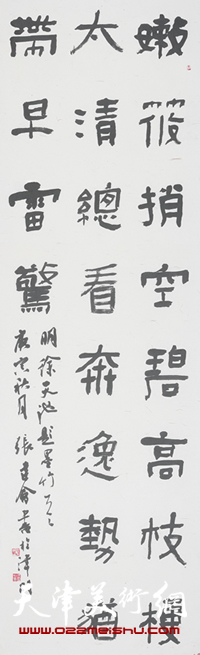 嫩篠捎空碧高枝梗
太清總看奔逸勢猶
帶早雷驚
明徐天池題墨竹
庚寅秋月張建會書於津
天津美術網
www.ozameishu.com